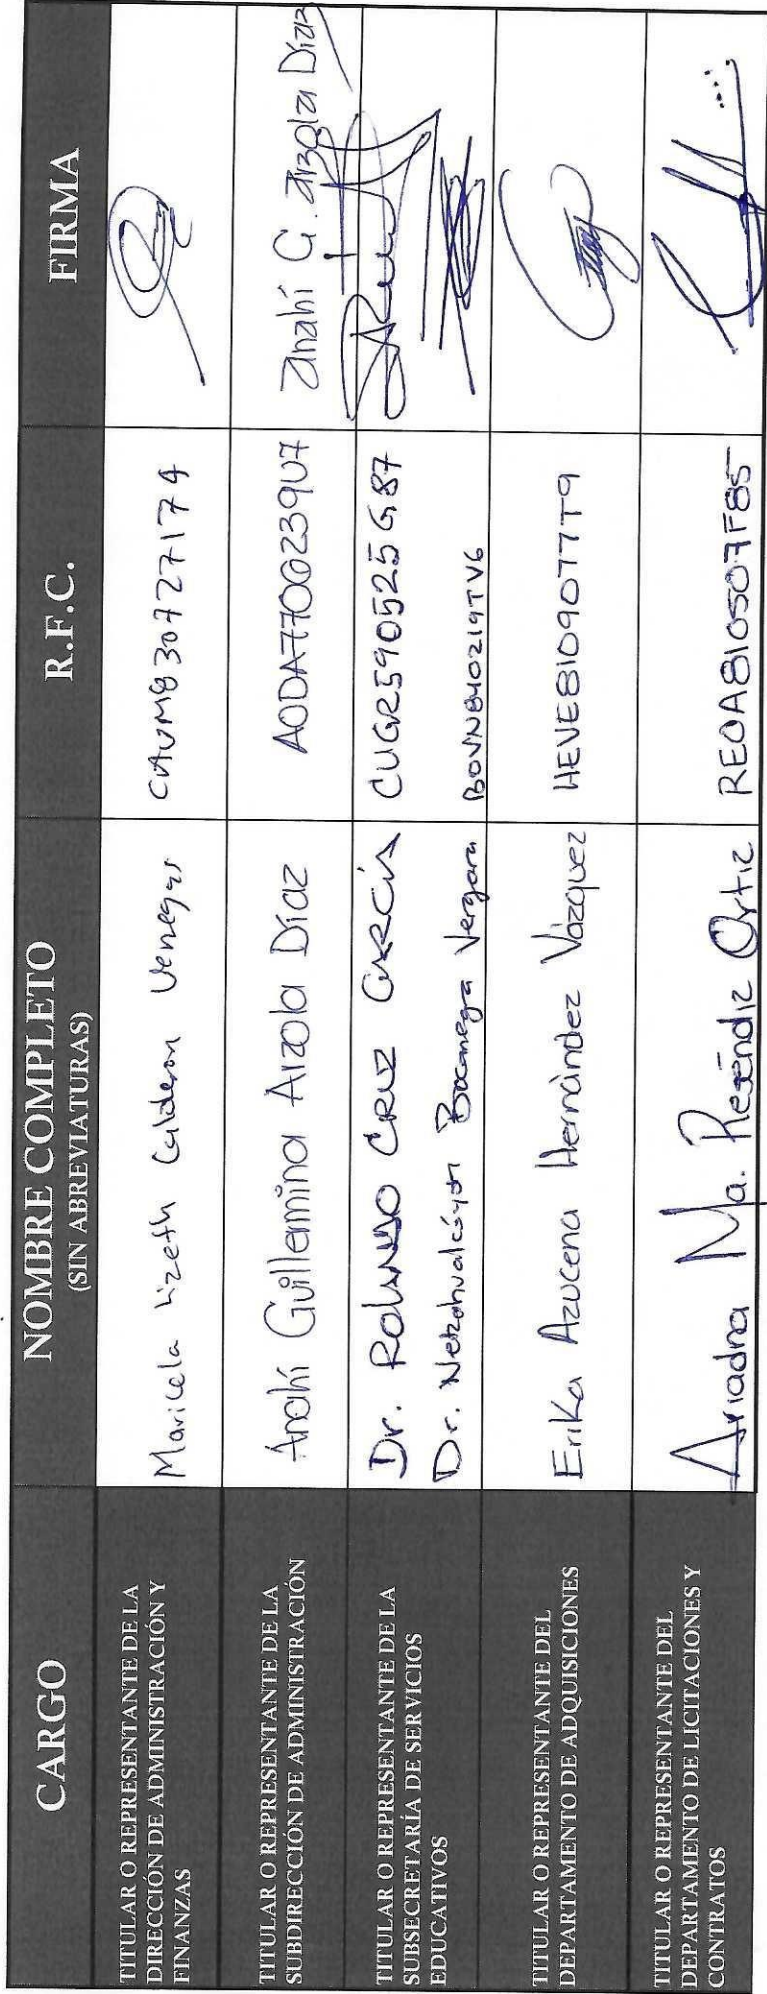 CARGO
NOMBRE COMPLETO
(SIN ABREVIATURAS)
R.F.C.
FIRMA
TITULAR O REPRESENTANTE DE LA
DIRECCIÓN DE ADMINISTRACIÓN Y
FINANZAS
Maricela Lizeth Calderon Venegas
CAVM830727174
TITULAR O REPRESENTANTE DE LA
SUBDIRECCIÓN DE ADMINISTRACIÓN
Anahí Guillermina Arzola Díaz
AODA7706239U7
Anahí G. Arzola Díaz
TITULAR O REPRESENTANTE DE LA
SUBSECRETARÍA DE SERVICIOS
EDUCATIVOS
Dr. ROLANDO CRUZ GARCÍA
CUGR590525G87
Dr. Netzahualcóyotl Bocanegra Vergara
BOVN840219TV6
TITULAR O REPRESENTANTE DEL
DEPARTAMENTO DE ADQUISICIONES
Erika Azucena Hernández Vázquez
HEVE810907TT9
TITULAR O REPRESENTANTE DEL
DEPARTAMENTO DE LICITACIONES Y
CONTRATOS
Ariadna Ma. Reséndiz Ortiz
REOA810507F85